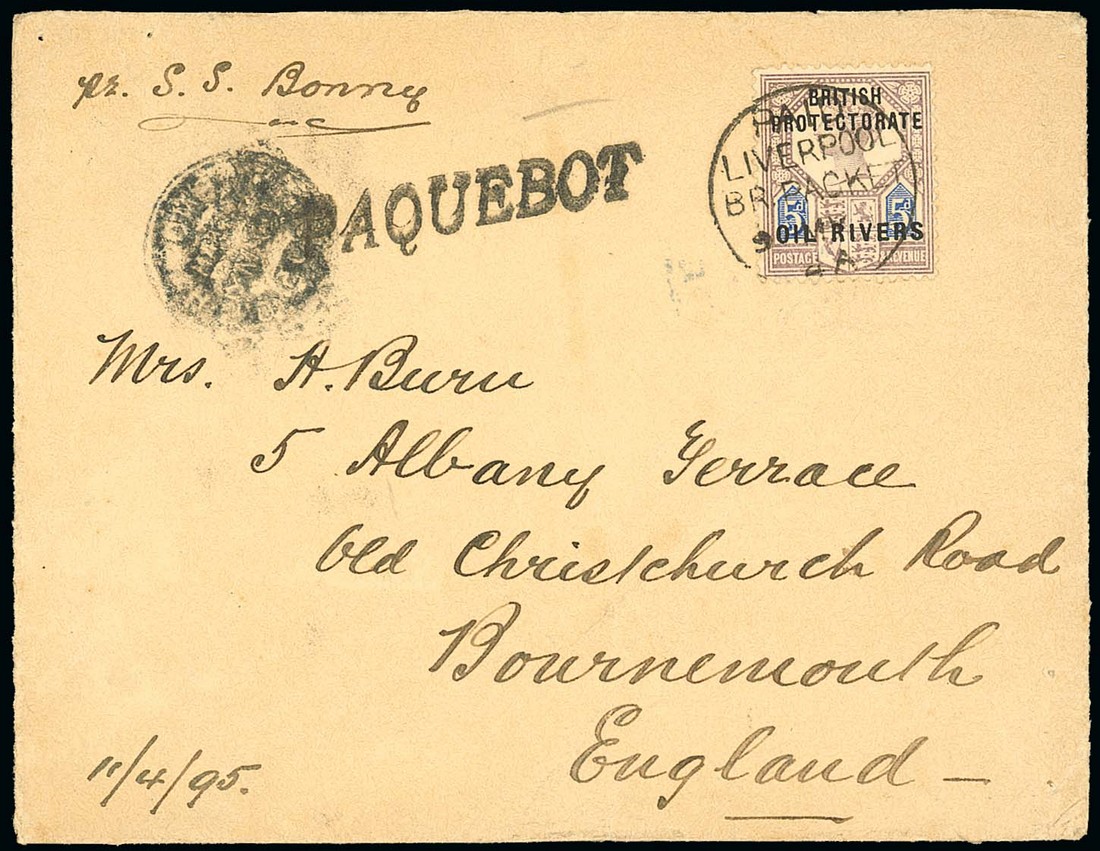 pr. S. S. Bonny
PAQUEBOT
BRITISH
PROTECTORATE
PAID
LIVERPOOL
BR. PACKET
9 MY
5d 5d
OIL RIVERS
POSTAGE REVENUE
Mrs. H. Burn
5 Albany Terrace
Old Christchurch Road
Bournemouth
England —
11/4/95.